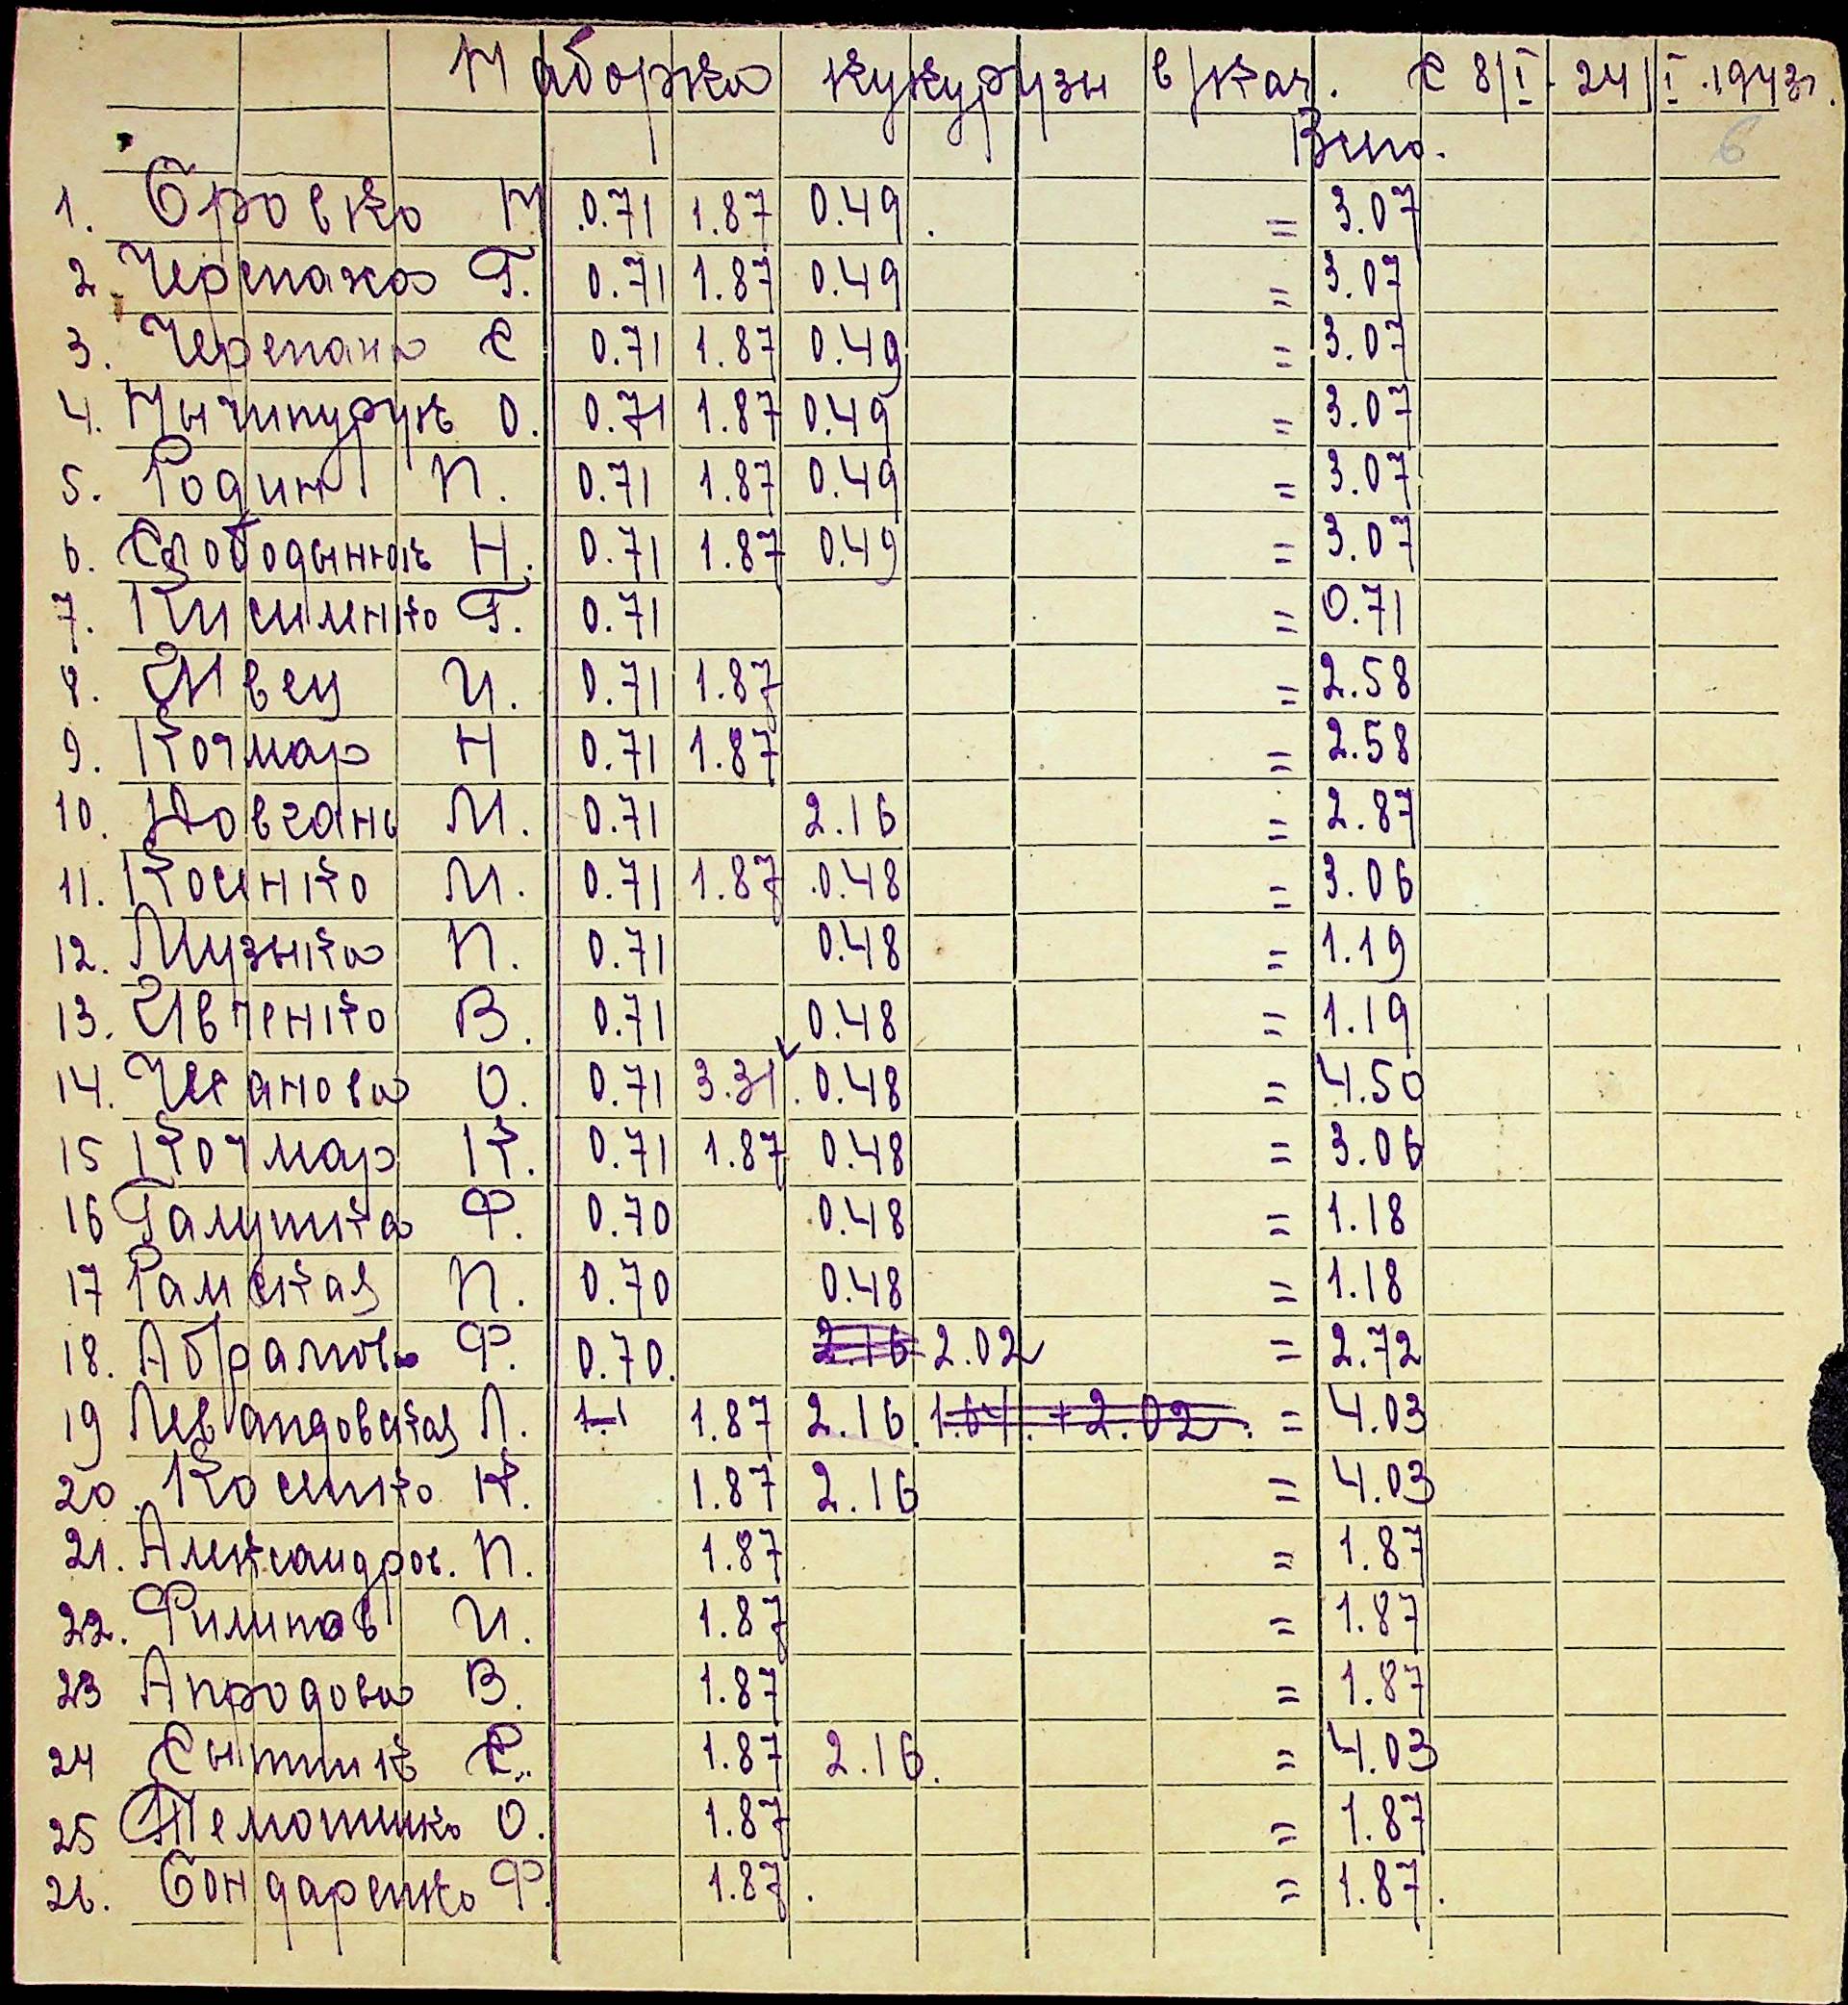 Уборка кукурузы в/кач. с 8/I - 24/I.1943г.
6
1. Бровко М 0.71 1.87 0.49 = 3.07
2. Черепаха Г. 0.71 1.87 0.49 = 3.07
3. Черепаха С 0.71 1.87 0.49 = 3.07
4. О. 0.71 1.87 0.49 = 3.07
5. Родин П. 0.71 1.87 0.49 = 3.07
6. Слободянюк Н. 0.71 1.87 0.49 = 3.07
7. Г. 0.71 = 0.71
8. Швец И. 0.71 1.87 = 2.58
9. Кочмар Н 0.71 1.87 = 2.58
10. Довгань М. 0.71 2.16 = 2.87
11. Косенко М. 0.71 1.87 0.48 = 3.06
12. П. 0.71 0.48 = 1.19
13. Ивченко В. 0.71 0.48 = 1.19
14. О. 0.71 3.31 0.48 = 4.50
15 Кочмар К. 0.71 1.87 0.48 = 3.06
16 Галушка Ф. 0.70 0.48 = 1.18
17 Рамская П. 0.70 0.48 = 1.18
18. Абрамова Ф. 0.70. 2.16 2.02 = 2.72
19 Левандовская Л. 1.87 2.16 1.64 + 2.02 = 4.03
20. Косенко К. 1.87 2.16 = 4.03
21. Александров. П. 1.87 = 1.87
22. Филипов И. 1.87 = 1.87
23 Апродова В. 1.87 = 1.87
24 Сытник С. 1.87 2.16. = 4.03
25 О. 1.87 = 1.87
26. Бондаренко Ф. 1.87. = 1.87.